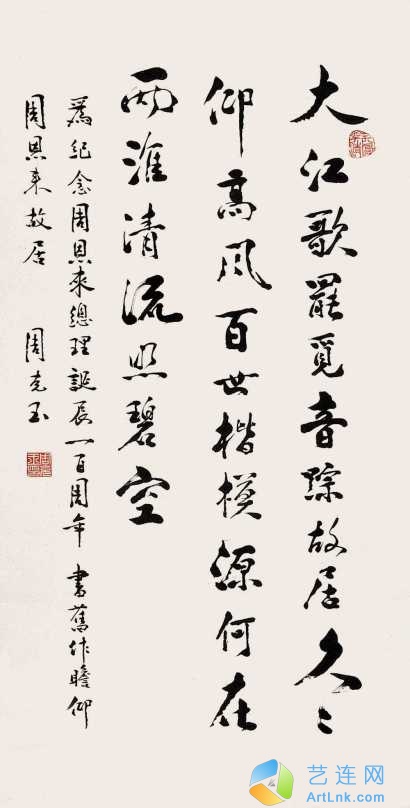 大江歌罢覓音踪故居久〻
仰高风百世楷模源何在
两淮清流照碧空
爲纪念周恩来總理誕辰一百周年 書舊作瞻仰
周恩来故居 周克玉
艺连网
ArtLnk.com